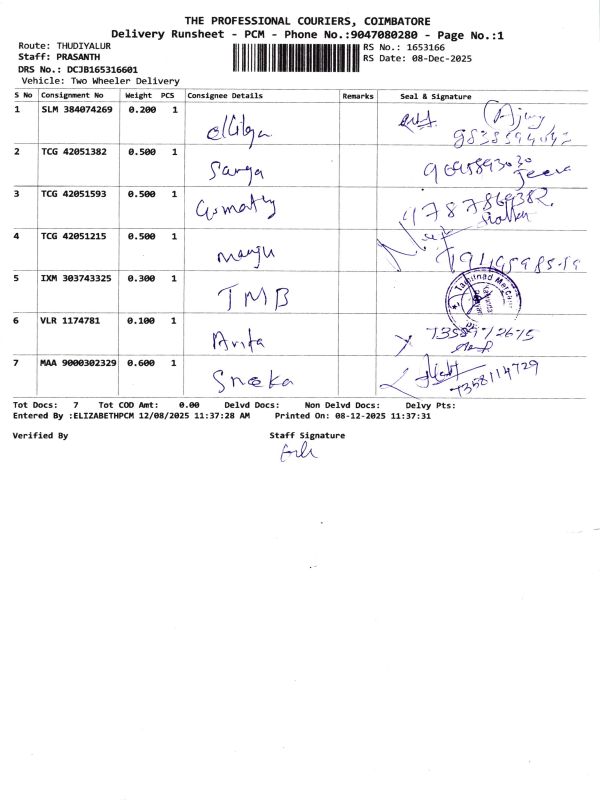 THE PROFESSIONAL COURIERS, COIMBATORE
Delivery Runsheet - PCM - Phone No.:9047080280 - Page No.:1
Route: THUDIYALUR RS No.: 1653166
Staff: PRASANTH RS Date: 08-Dec-2025
DRS No.: DCJB165316601
Vehicle: Two Wheeler Delivery
S No Consignment No Weight PCS Consignee Details Remarks Seal & Signature
1 SLM 384074269 0.200 1 (Ajay
2 TCG 42051382 0.500 1 Sanga Jeeva
3 TCG 42051593 0.500 1 Gomathy 9787869382
4 TCG 42051215 0.500 1 Manju
5 IXM 303743325 0.300 1 TMB Tamilnad Mercan
6 VLR 1174781 0.100 1 Anita
7 MAA 9000302329 0.600 1 Sneka 7358114729
Tot Docs: 7 Tot COD Amt: 0.00 Delvd Docs: Non Delvd Docs: Delvy Pts:
Entered By :ELIZABETHPCM 12/08/2025 11:37:28 AM Printed On: 08-12-2025 11:37:31
Verified By Staff Signature